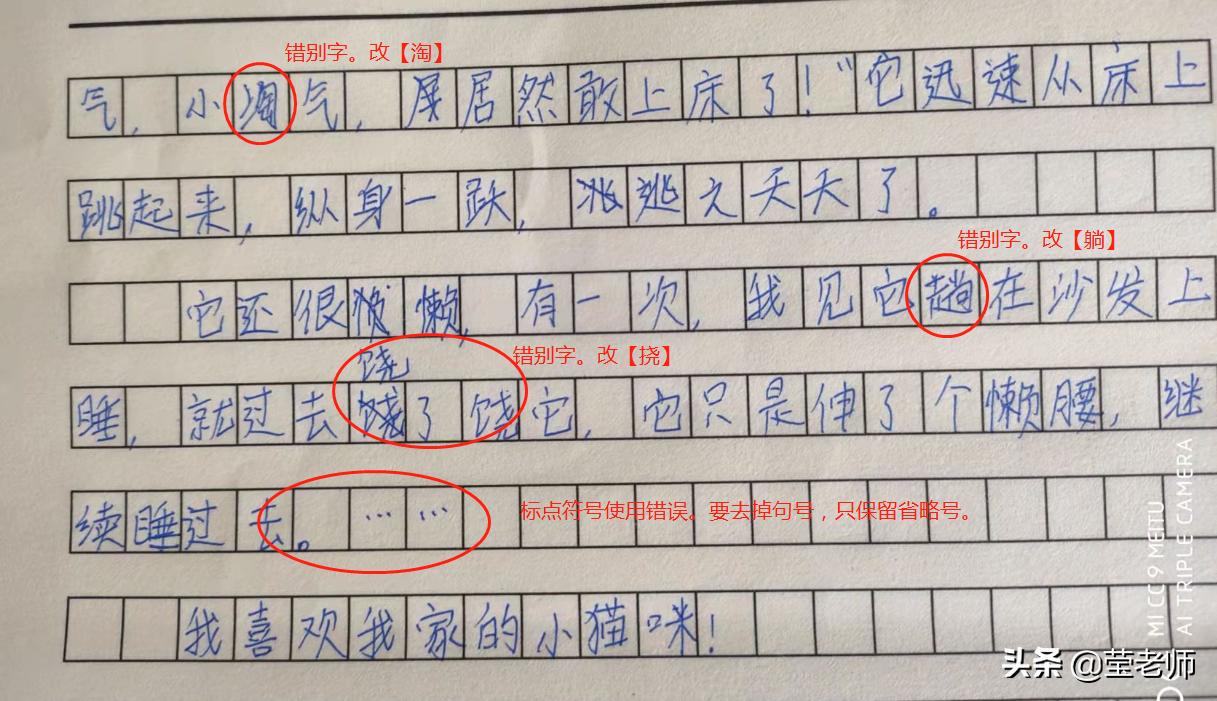 错别字。改【淘】
气，小淘气，居然敢上床了！"它迅速从床上
跳起来，纵身一跃，逃之夭夭了。
错别字。改【躺】
它还很懒，有一次，我见它趟在沙发上
饶
错别字。改【挠】
睡，就过去饶了饶它，它只是伸了个懒腰，继
续睡过去。……
标点符号使用错误。要去掉句号，只保留省略号。
我喜欢我家的小猫咪！
MI CC 9 MEITU
AI TRIPLE CAMERA
头条 @莹老师